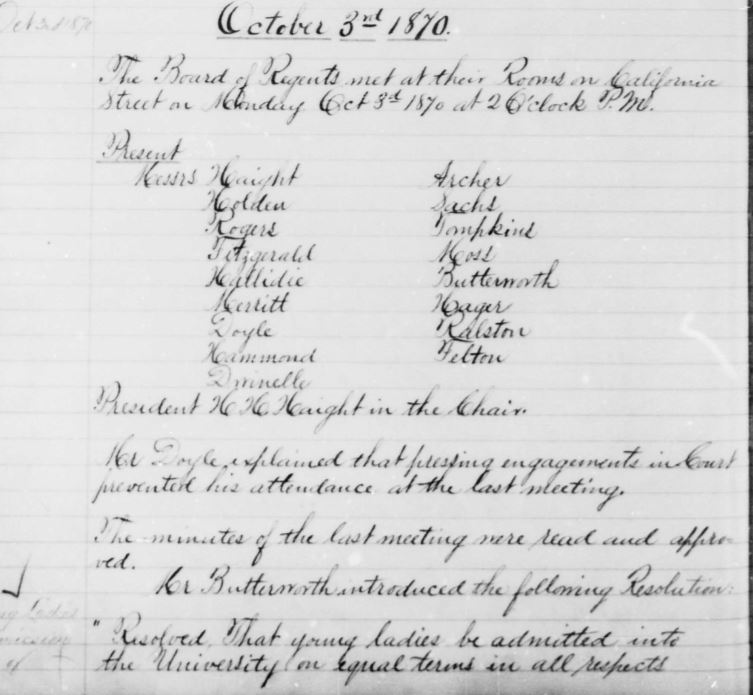 Oct 3rd 1870
October 3rd 1870.
The Board of Regents met at their Rooms on California
Street on Monday Oct 3d 1870 at 2 O'clock P.M.
Present
Messrs Haight Archer
Holden Sachs
Rogers Tompkins
Fitzgerald Moss
Hallidie Butterworth
Merritt Hager
Doyle Ralston
Hammond Felton
Dwinelle
President H. H. Haight in the Chair.
Mr Doyle explained that pressing engagements in Court
prevented his attendance at the last meeting.
The minutes of the last meeting were read and appro-
ved.
Mr Butterworth introduced the following Resolution:
"Resolved, That young ladies be admitted into
the University on equal terms in all respects
Ladies
of